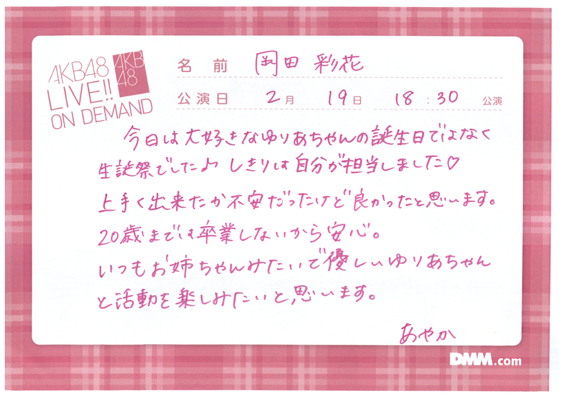 AKB48
LIVE!!
ON DEMAND
AKB
48
名前 岡田 彩花
公演日 2月 19日 18:30 公演
今日は大好きなゆりあちゃんの誕生日ではなく
生誕祭でした♪ しきりは自分が担当しました♡
上手く出来たか不安だったけど良かったと思います。
20歳までは卒業しないから安心。
いつもお姉ちゃんみたいで優しいゆりあちゃん
と活動を楽しみたいと思います。
あやか
DMM.com